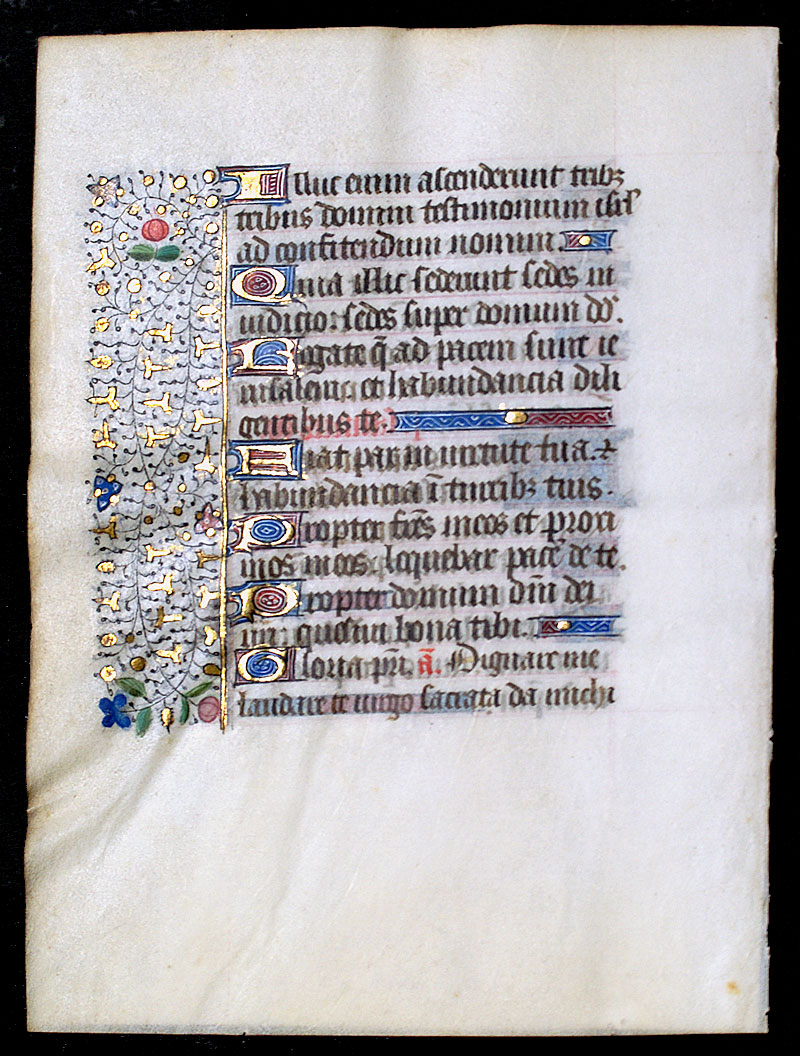 Illuc enim ascenderunt tribꝫ
tribus domini testimonium isrl̄
ad confitendum nomini.
Quia illic sederunt sedes in
iudicio: sedes super domum dd̄.
Rogate q̄ ad pacem sunt ie
rusalem: et habundancia dili
gentibus te.
Fiat pax in uirtute tua. ⁊
habundancia ī turribꝫ tuis.
Propter fr̄es meos et proxi
mos meos: loquebar pacē de te.
Propter domum dn̄i dei
nr̄i: quesiui bona tibi.
Gloria pr̄i. a. Dignare me
laudare te uirgo sacrata da michi